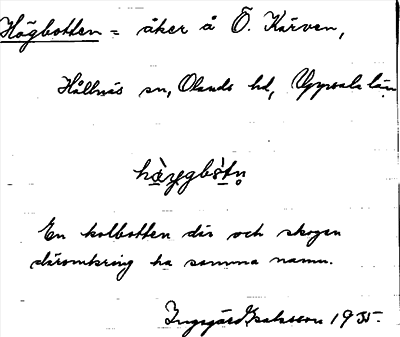 Högbotten = åker å Ö. Kärven,
Hållnäs sn, Olands hd, Uppsala län
hö̀gbòtn̥
En kolbotten där och skogen
däromkring ha samma namn.
Ingegärd Isaksson 1935.